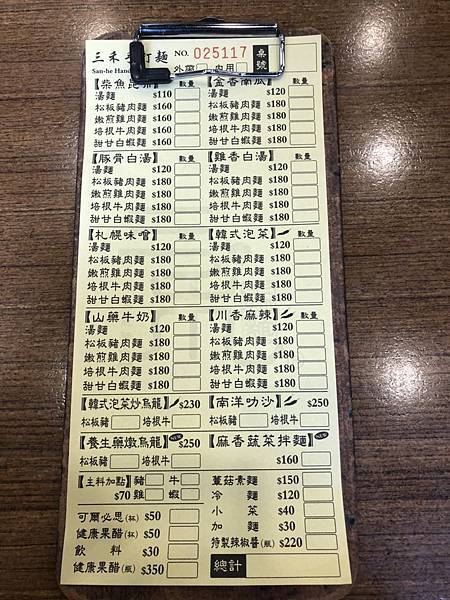 三禾手打麵 NO. 025117 桌號
San-he Hand
外帶 內用
數量 【金香南瓜】 數量
湯麵 $110 湯麵 $120
松板豬肉麵 $160 松板豬肉麵 $180
嫩煎雞肉麵 $160 嫩煎雞肉麵 $180
培根牛肉麵 $160 培根牛肉麵 $180
甜甘白蝦麵 $160 甜甘白蝦麵 $180
【豚骨白湯】 數量 【雞香白湯】 數量
湯麵 $120 湯麵 $120
松板豬肉麵 $180 松板豬肉麵 $180
嫩煎雞肉麵 $180 嫩煎雞肉麵 $180
培根牛肉麵 $180 培根牛肉麵 $180
甜甘白蝦麵 $180 甜甘白蝦麵 $180
【札幌味噌】 數量 【韓式泡菜】 數量
湯麵 $120 湯麵 $120
松板豬肉麵 $180 松板豬肉麵 $180
嫩煎雞肉麵 $180 嫩煎雞肉麵 $180
培根牛肉麵 $180 培根牛肉麵 $180
甜甘白蝦麵 $180 甜甘白蝦麵 $180
【山藥牛奶】 數量 【川香麻辣】 數量
湯麵 $120 湯麵 $120
松板豬肉麵 $180 松板豬肉麵 $180
嫩煎雞肉麵 $180 嫩煎雞肉麵 $180
培根牛肉麵 $180 培根牛肉麵 $180
甜甘白蝦麵 $180 甜甘白蝦麵 $180
【韓式泡菜炒烏龍】 $230 【南洋叻沙】 $250
松板豬 培根牛 松板豬 培根牛
【養生藥燉烏龍】 $250 【麻香蔬菜拌麵】
松板豬 培根牛 $160
【主料加點】 豬 牛 蕈菇素麵 $150
$70 雞 蝦 冷麵 $120
小菜 $40
可爾必思(杯) $50 加麵 $30
健康果醋(杯) $50 特製辣椒醬(瓶) $220
飲料 $30
健康果醋(瓶) $350 總計